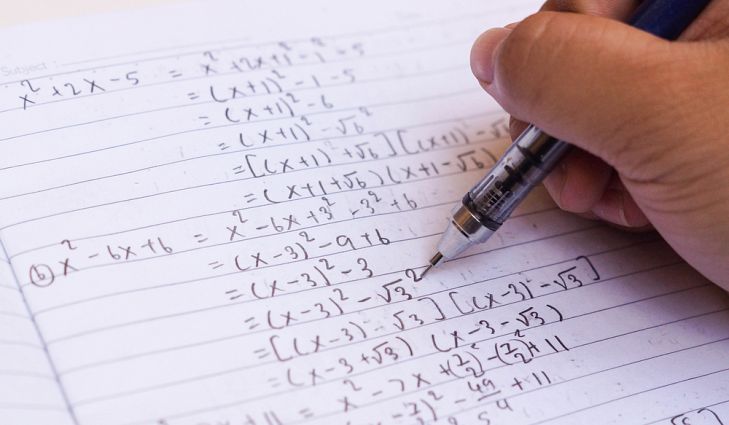 Subject :
x² + 2x - 5 = x² + 2x + 1² - 1² - 5
= (x+1)² - 1 - 5
= (x+1)² - 6
= (x+1)² - √6²
= [(x+1) + √6] [(x+1) - √6]
= (x+1+√6) (x+1-√6)
(b) x² - 6x + 6 = x² - 6x + 3² - 3² + 6
= (x-3)² - 9 + 6
= (x-3)² - 3
= (x-3)² - √3²
= [(x-3) - √3] [(x-3) - √3]
= (x-3+√3) (x-3-√3)
+ 11 = x² - 7x + (7/2)² - (7/2)² + 11
- 49/4 + 11